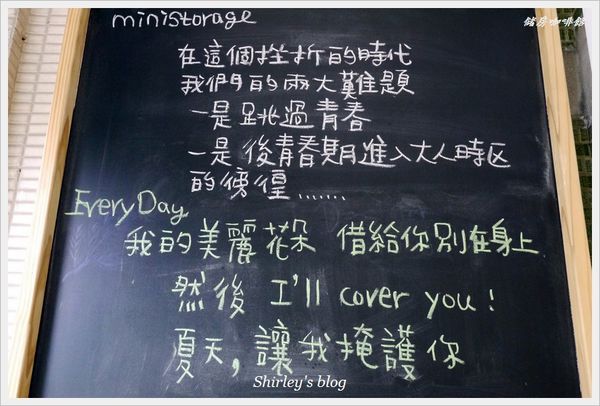 ministorage
鍺房咖啡館
在這個挫折的時代
我們的兩大難題
一是跳過青春
一是後青春期進入大人時区
的徬徨......
Every Day
我的美麗花朵 借給你別在身上
然後 I'll cover you!
夏天,讓我掩護你
Shirley's blog